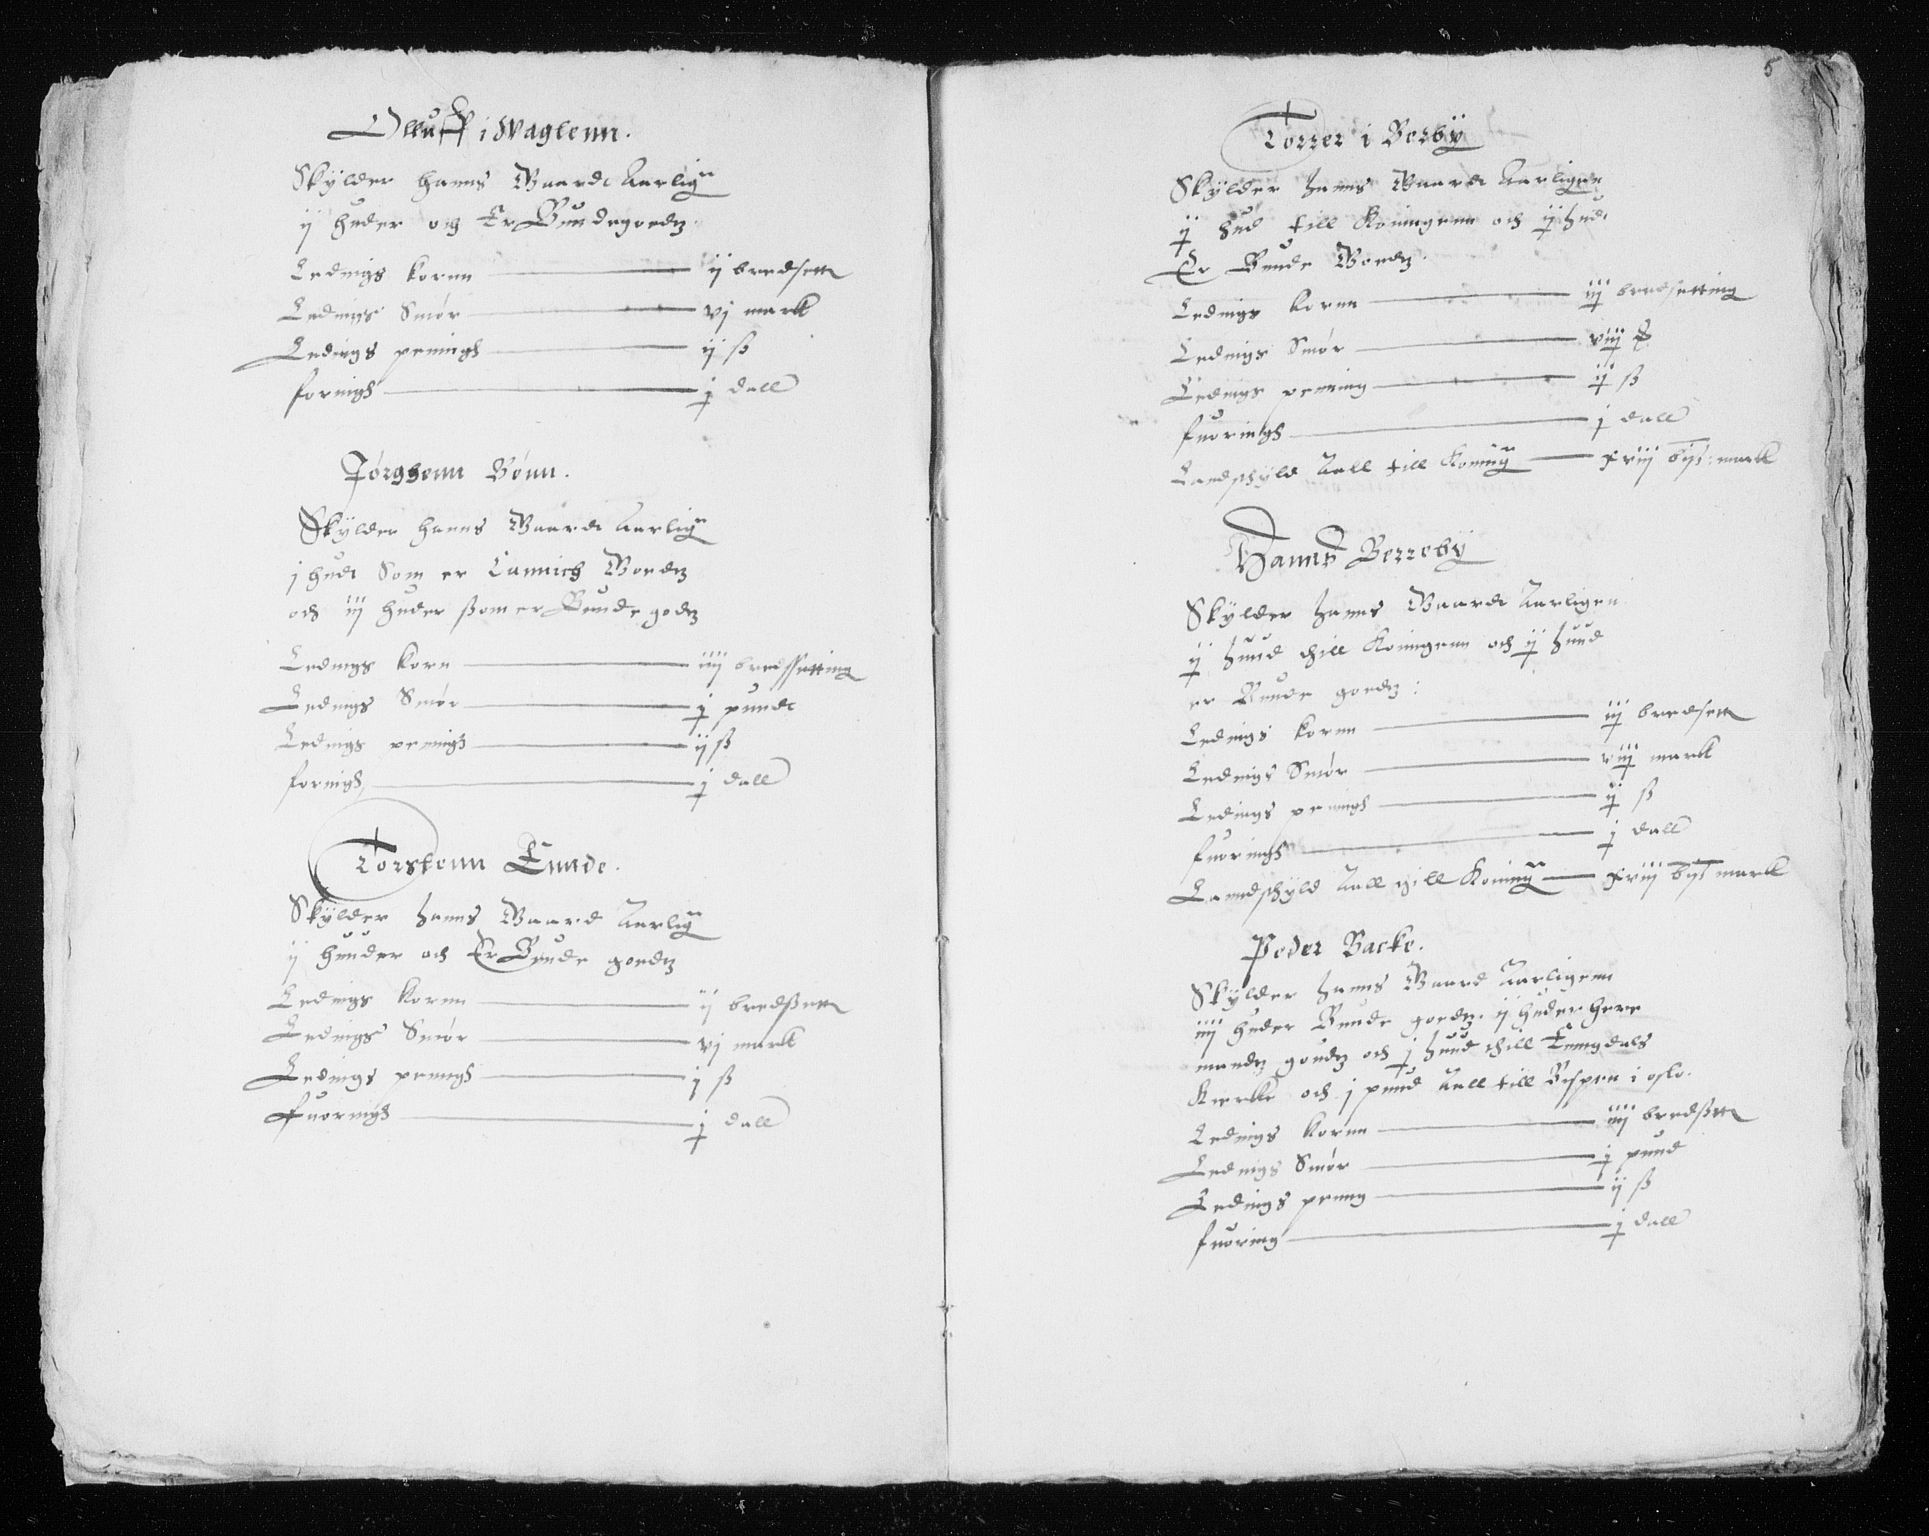 Olluff i Waglenn.
Skylder hanns Gaard Aarligen
ij huder og Er Bundegoedz
Ledings kornn ij bredsett
Ledings Smør vj mark
Ledings peningh ij ß
foringh j dall
Jørghenn Bønn.
Skylder hanns Gaard Aarligen
j hud Som er Cannich Goedz
och iij huder ßom er Bunde godz
Ledings korn iiij bredssetting
Ledings Smør j pund
Ledings peningh ij ß
foringh j dall
Torstenn Lunde.
Skylder hanns Gaard Aarligen
ij huuder och Er Bunde goedz
Ledings kornn ij bredßett
Ledings Smør vj mark
Ledings peningh j ß
Fuoringh j dall
5
Torrer i Berby
Skylder hanns Gaard Aarligen
ij hud till Koningenn och ij hud
Er Bunde Goedz.
Ledings kornn iij bredsetting
Ledings Smør viij
Ledings penning ij ß
fuoringh j dall
Landschyld Aall till Koning xviij bijs: mark
Hanns Berreby
Skylder hanns Gaard Aarligen
ij huud thill Koningenn och ij huud
er Bunde goedz:
Ledings kornn iij bredsett
Ledings Smør viij mark
Ledings peningh ij ß
fuoringh j dall
Lanndschyld Aall till Koning xviij bijs mark
Peder Backe.
Skylder hanns Gaard Aarligenn
iiij huder Bunde goedz. ij huder herre
mandz goudz och j huud thill Tungdals
Kierke och j pund Aall till Bispen i oslo.
Ledings kornn iiij bredßett
Ledings Smør j pund
Ledings pening ij ß
fuoring j dall